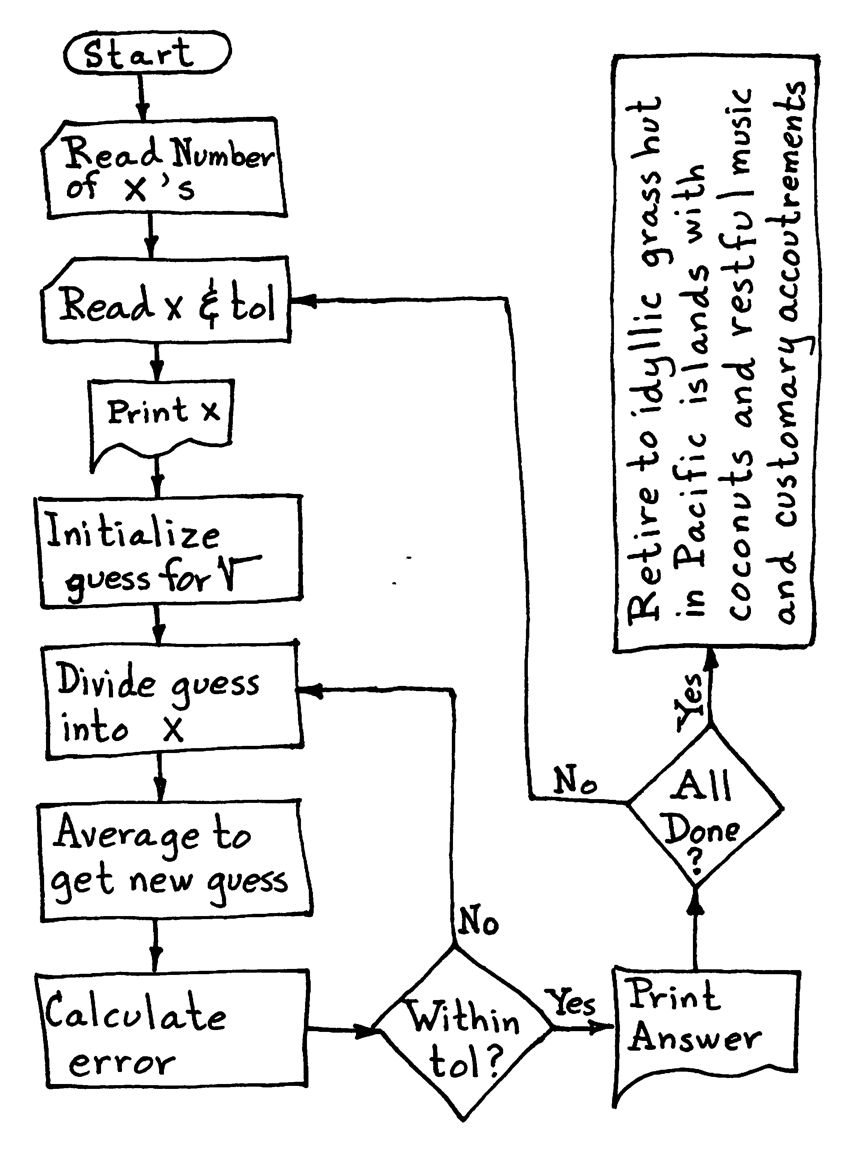 Start
Read Number
of x's
Read x & tol
Print x
Initialize
guess for √
Divide guess
into x
Average to
get new guess
Calculate
error
Within
tol?
No
Yes
Print
Answer
All
Done
?
No
Yes
Retire to idyllic grass hut
in Pacific islands with
coconuts and restful music
and customary accoutrements